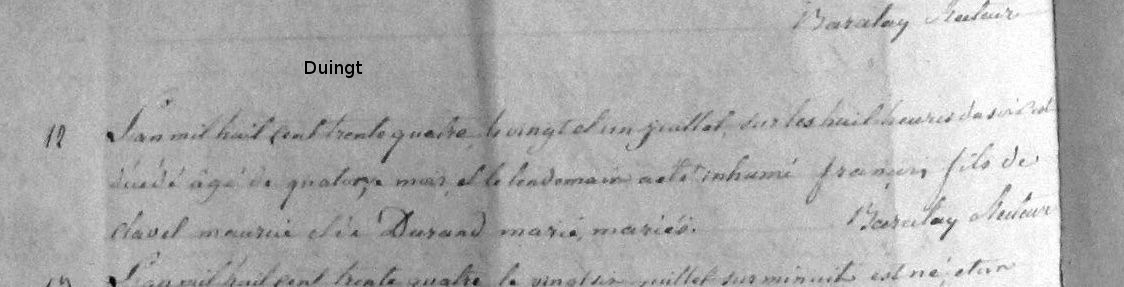 Baralay Recteur
Duingt
12 L'an mil huit cent trente quatre, le vingt et un juillet, sur les huit heures du soir est
décédé âgé de quatorze mois, et le lendemain a été inhumé françois fils de
clavel maurice et de Durand marie, mariés.
Baralay Recteur
13 L'an mil huit cent trente quatre le vingt six juillet sur minuit est né, et un